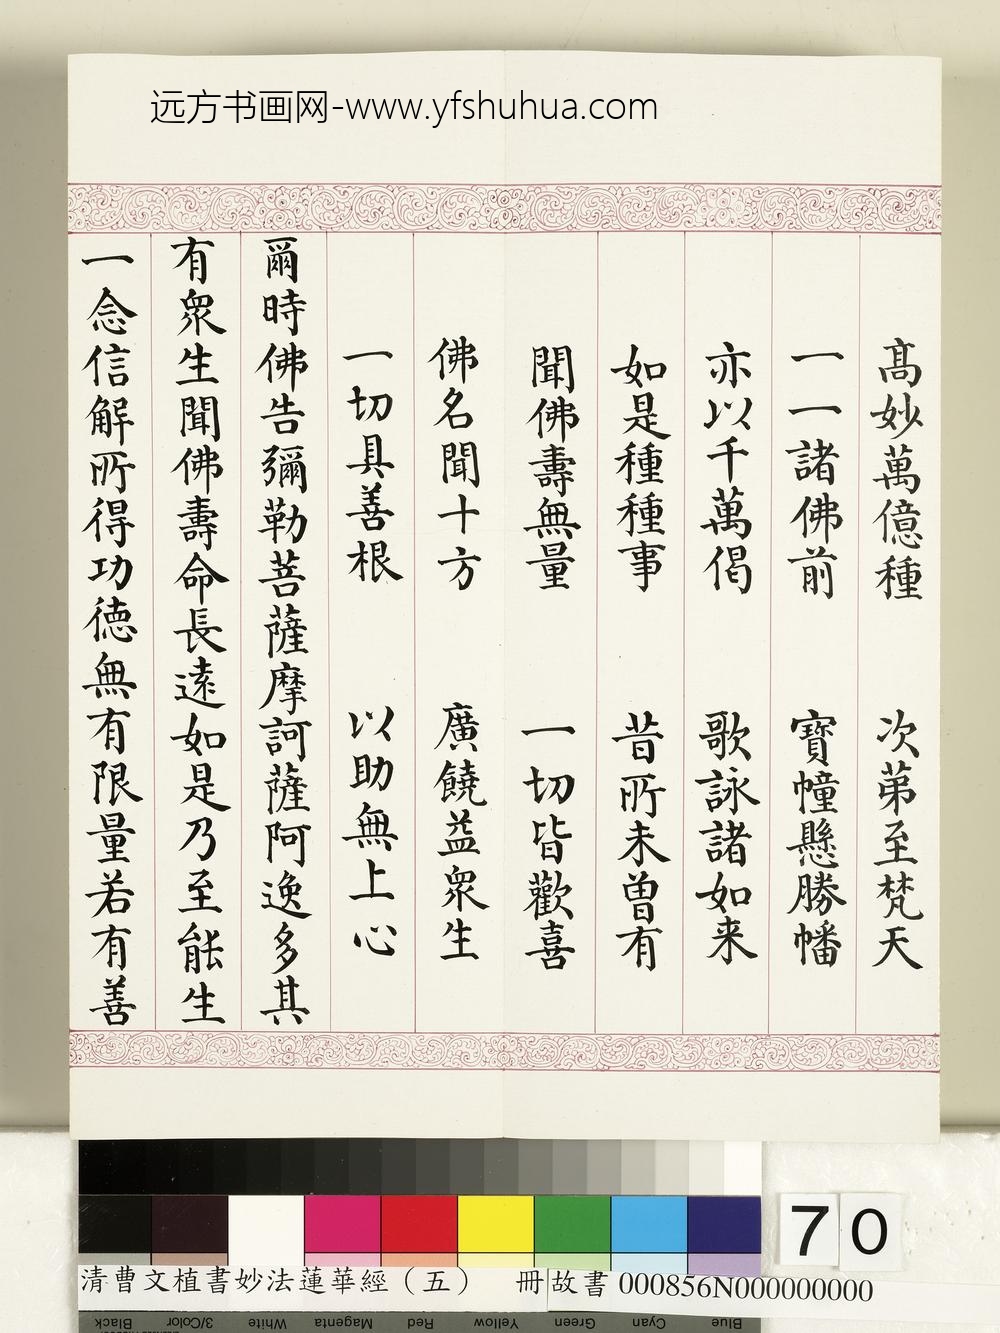 远方书画网-www.yfshuhua.com
高妙萬億種　次第至梵天
一一諸佛前　寶幢懸勝幡
亦以千萬偈　歌詠諸如来
如是種種事　昔所未曽有
聞佛壽無量　一切皆歡喜
佛名聞十方　廣饒益衆生
一切具善根　以助無上心
爾時佛告彌勒菩薩摩訶薩阿逸多其
有衆生聞佛壽命長遠如是乃至能生
一念信解所得功徳無有限量若有善
70
清曹文植書妙法蓮華經（五）　冊 故書 000856N000000000
Black 3/Color White Magenta Red Yellow Green Cyan Blue